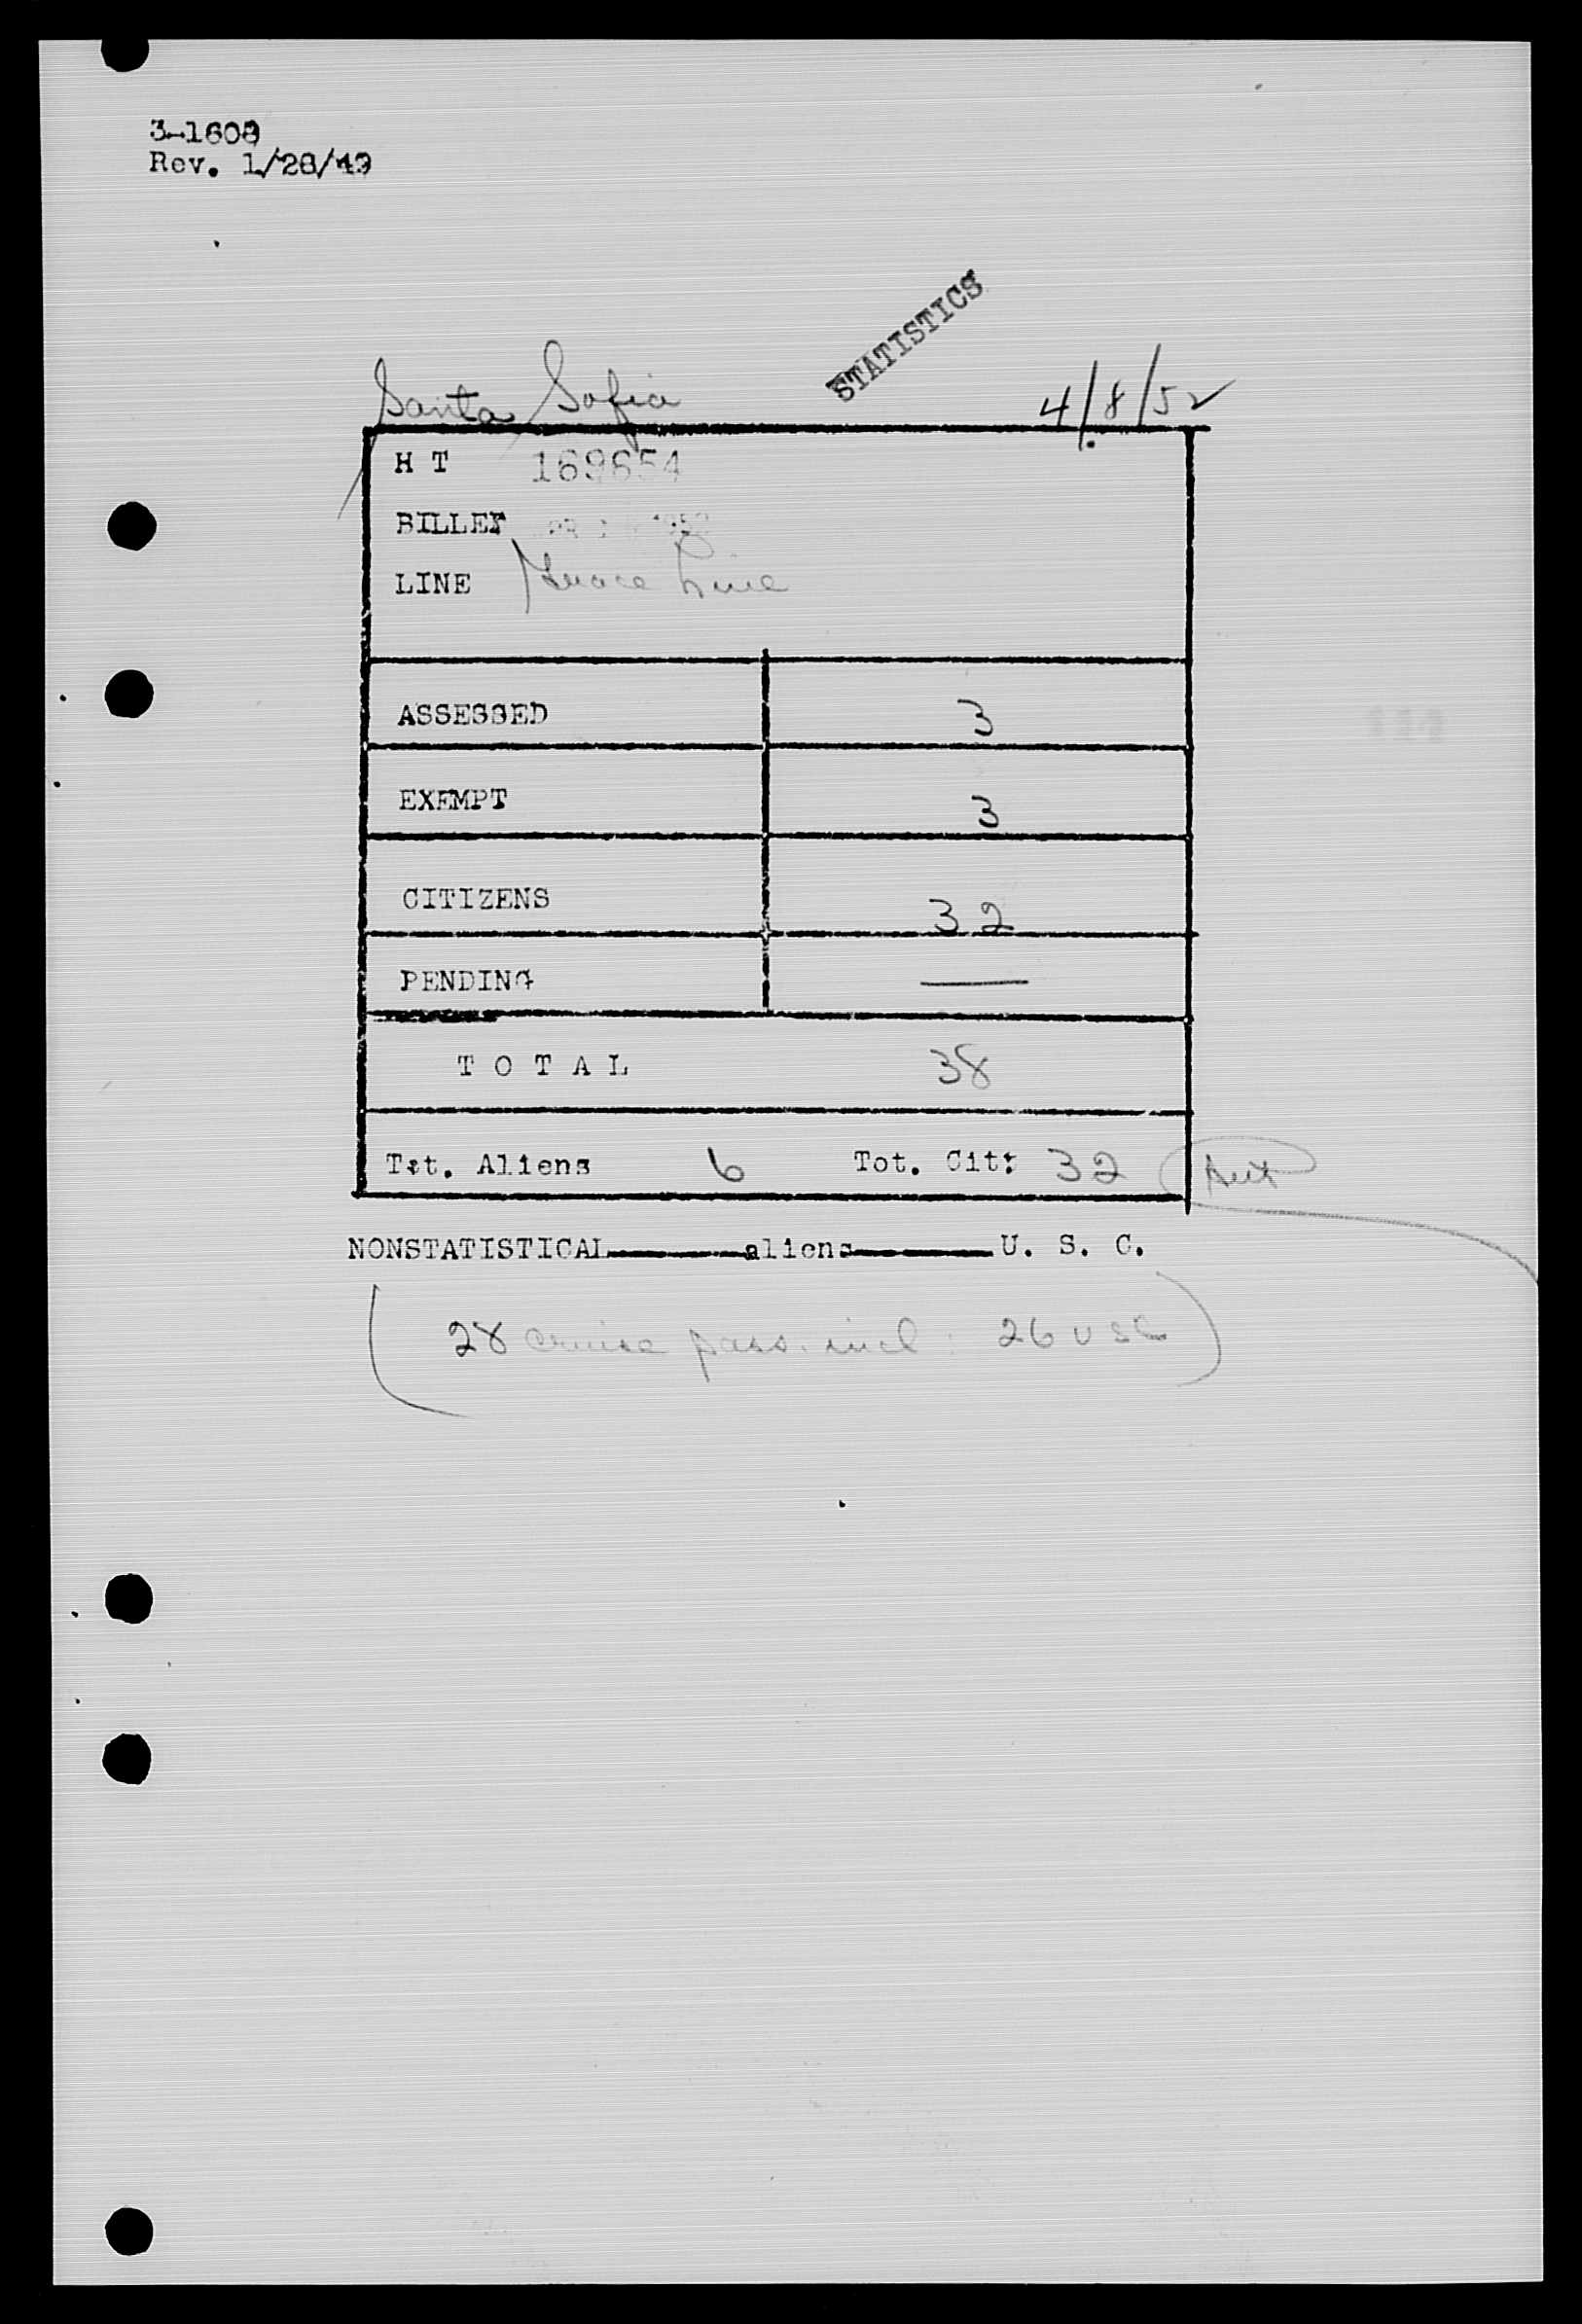 3-1608
Rev. 1/28/49
STATISTICS
Santa Sofia 4/8/52
H T 169654
BILLET
LINE Grace Line
ASSESSED 3
EXEMPT 3
CITIZENS 32
PENDING —
T O T A L 38
Tot. Aliens 6 Tot. Cit: 32
NONSTATISTICAL aliens U. S. C.
(28 cruise pass. incl. 26 USC)